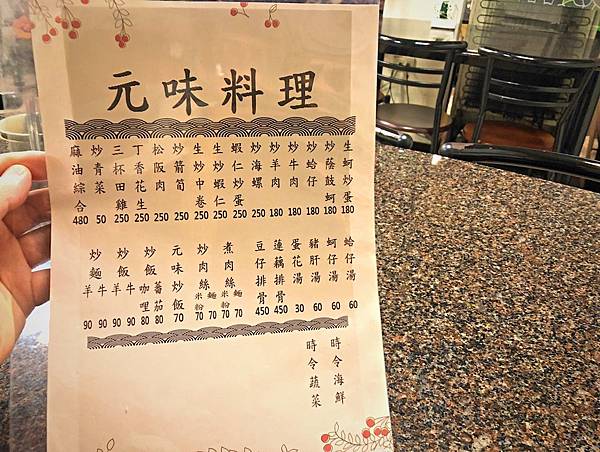 元味料理
生蚵炒蛋 180
炒蔭鼓蚵 180
炒蛤仔 180
炒牛肉 180
炒羊肉 180
炒海螺 250
蝦仁炒蛋 250
生炒蝦仁 250
生炒中卷 250
炒箭筍 250
松阪肉 250
丁香花生 250
三杯田雞 250
炒青菜 50
麻油綜合 480
蛤仔湯 60
蚵仔湯 60
豬肝湯 60
蛋花湯 30
蓮藕排骨 450
豆仔排骨 450
煮肉絲 麵 70 米粉 70
炒肉絲 麵 70 米粉 70
元味炒飯 70
炒飯 蕃茄 80 咖哩 80
炒飯 牛 90 羊 90
炒麵 牛 90 羊 90
時令海鮮
時令蔬菜